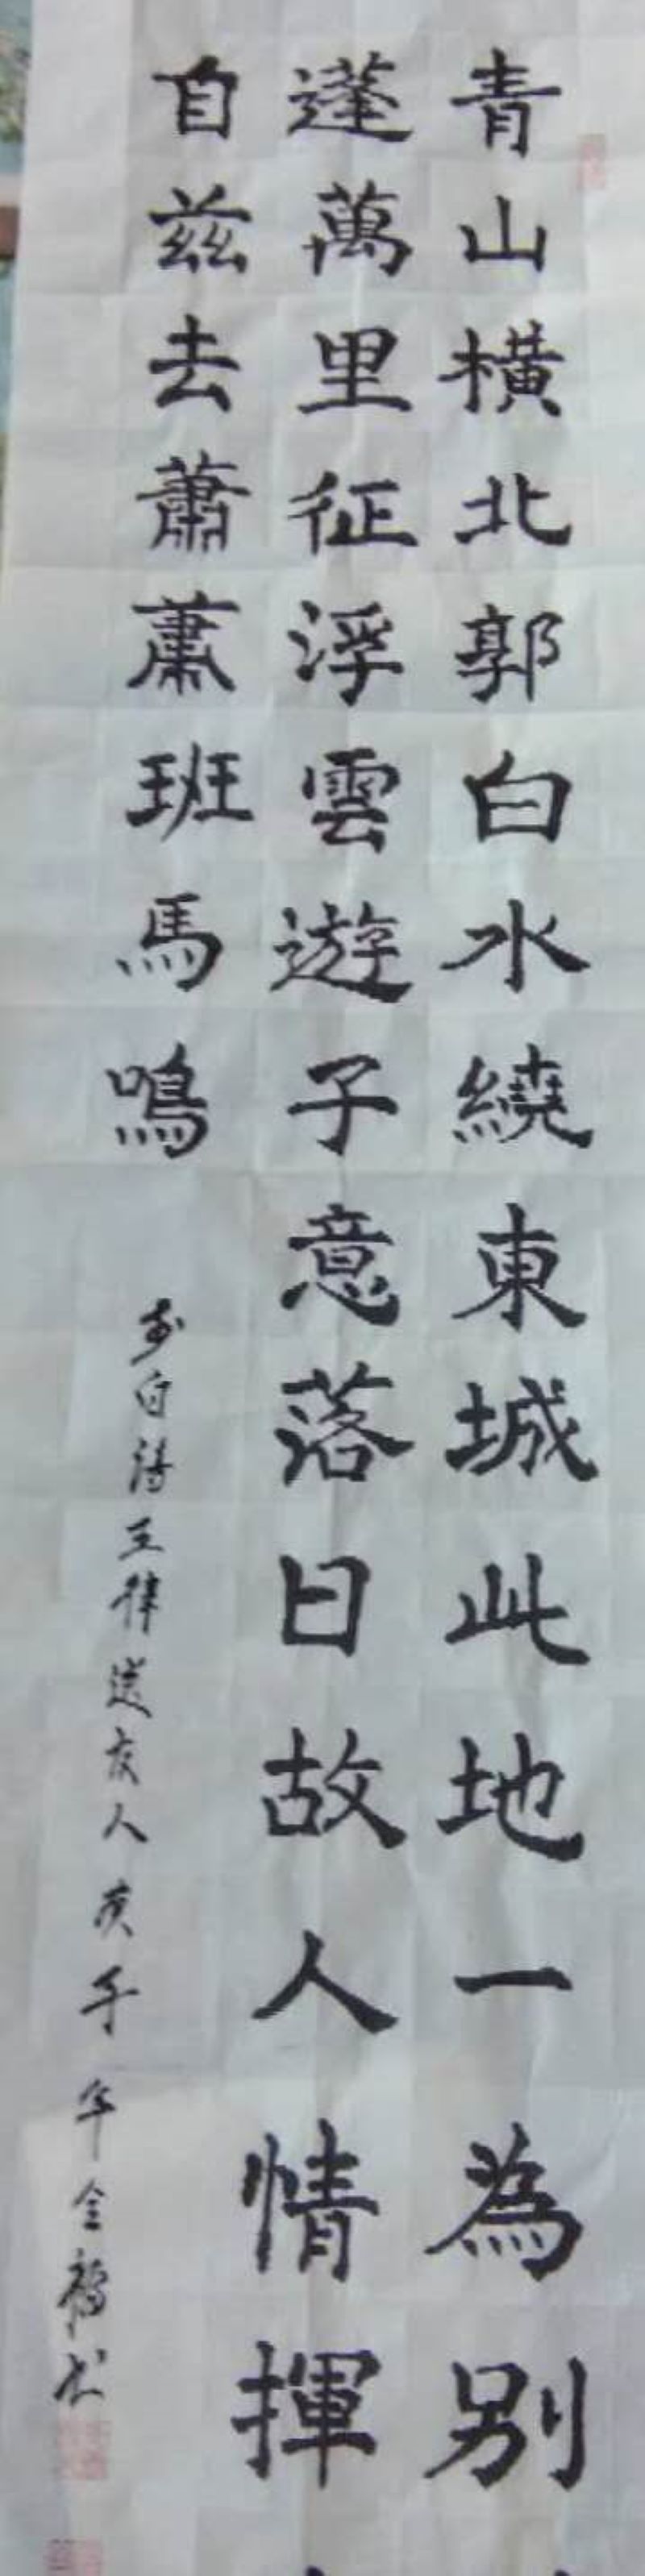 青山橫北郭白水繞東城此地一為別
蓬萬里征浮雲遊子意落日故人情揮
自茲去蕭蕭班馬鳴
李白詩五律送友人庚子年全福书